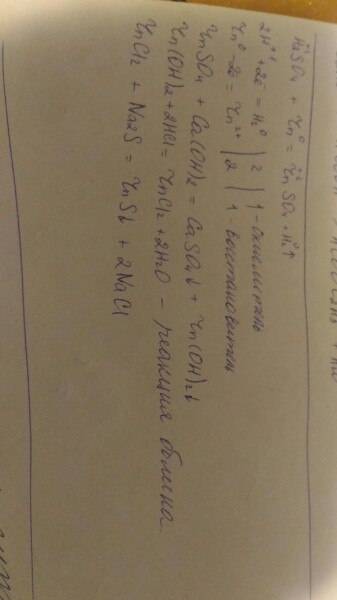 H₂⁺SO₄ + Zn⁰ = Zn²⁺SO₄ + H₂⁰↑
2H⁺ + 2e̅ = H₂⁰ | 2 | 1 - окислитель
Zn⁰ - 2e̅ = Zn²⁺ | 2 | 1 - восстановитель
ZnSO₄ + Ca(OH)₂ = CaSO₄↓ + Zn(OH)₂↓
Zn(OH)₂ + 2HCl = ZnCl₂ + 2H₂O - реакция обмена
ZnCl₂ + Na₂S = ZnS↓ + 2NaCl